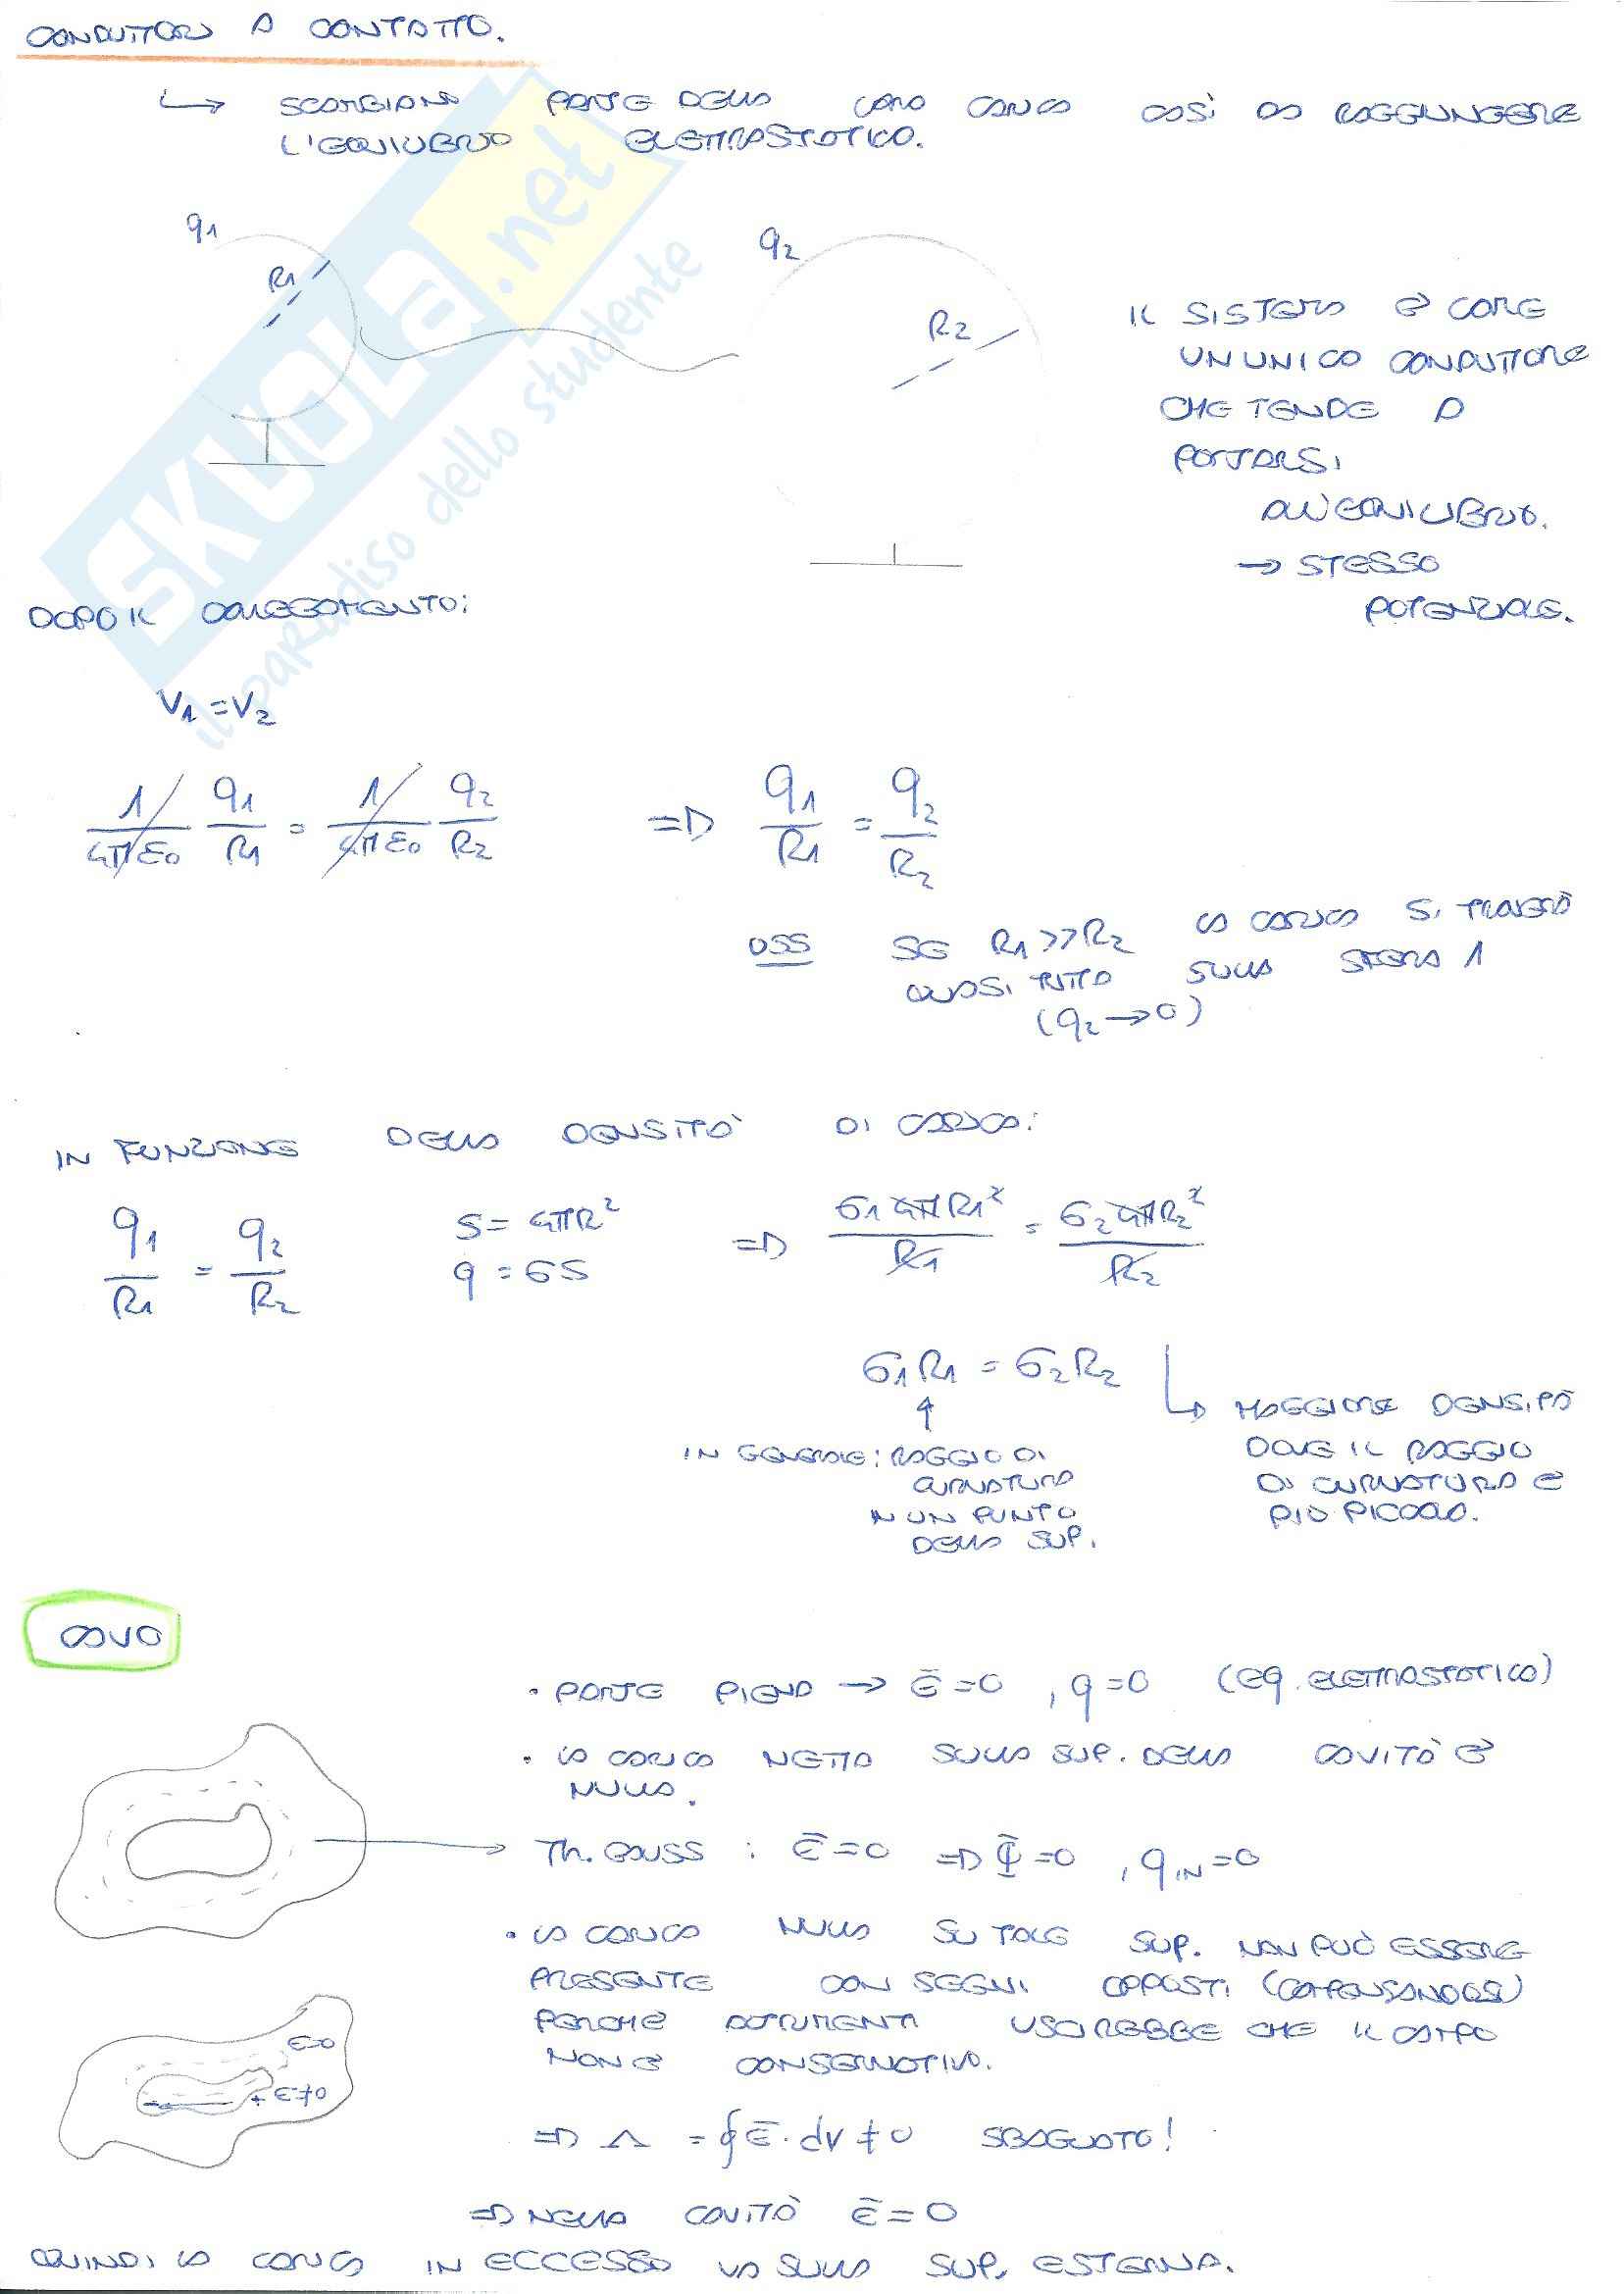 CONDUTTORI A CONTATTO.
↳ SCAMBIANO PARTE DELLA LORO CARICA COSÌ DA RAGGIUNGERE
L'EQUILIBRIO ELETTROSTATICO.
q1
R1
q2
R2
IL SISTEMA È COME
UN UNICO CONDUTTORE
CHE TENDE A
PORTARSI
ALL'EQUILIBRIO.
→ STESSO
POTENZIALE.
DOPO IL COLLEGAMENTO:
V1 = V2
1/(4πε0) q1/R1 = 1/(4πε0) q2/R2 => q1/R1 = q2/R2
OSS SE R1 >> R2 LA CARICA SI TROVERÀ
QUASI TUTTA SULLA SFERA 1
(q2 → 0)
IN FUNZIONE DELLA DENSITÀ DI CARICA:
q1/R1 = q2/R2 S = 4πR² => σ1 4πR1²/R1 = σ2 4πR2²/R2
q = σS
σ1R1 = σ2R2
↳ MAGGIORE DENSITÀ
DOVE IL RAGGIO
DI CURVATURA È
PIÙ PICCOLO.
↑
IN GENERALE: RAGGIO DI
CURVATURA
IN UN PUNTO
DELLA SUP.
CAVO
• PARTE PIENA → Ē = 0 , q = 0 (EQ. ELETTROSTATICO)
• LA CARICA NETTA SULLA SUP. DELLA CAVITÀ È
NULLA.
Th. GAUSS : Ē = 0 => Φ̄ = 0 , qIN = 0
• LA CARICA NULLA SU TALE SUP. NON PUÒ ESSERE
PRESENTE CON SEGNI OPPOSTI (COMPENSANDOSI)
PERCHÈ ALTRIMENTI USCIREBBE CHE IL CAMPO
NON È CONSERVATIVO.
E=0
- + E≠0
=> Λ = ∮Ē · dV ≠ 0 SBAGLIATO!
=> NELLA CAVITÀ Ē = 0
QUINDI LA CARICA IN ECCESSO VA SULLA SUP. ESTERNA.
SKUOLA.net
il paradiso dello studente